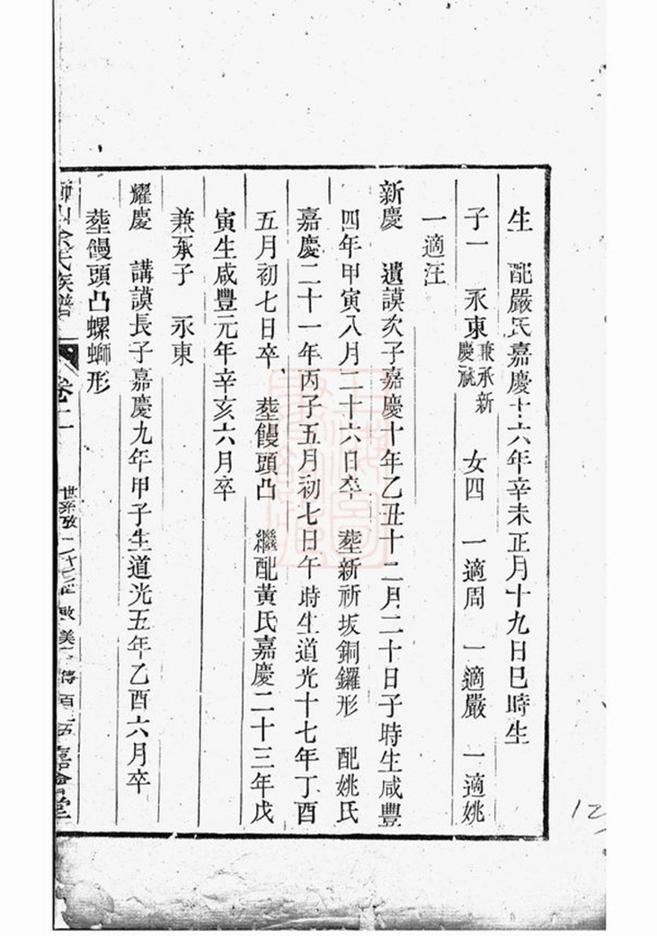 生 配嚴氏嘉慶十六年辛未正月十九日巳時生
子一 永東兼承新慶祧 女四 一適周 一適嚴 一適姚
一適汪
新慶 遺謨次子嘉慶十年乙丑十二月二十日子時生咸豐
四年甲寅八月二十六日卒 塟新祈坂銅鑼形 配姚氏
嘉慶二十一年丙子五月初七日午時生道光十七年丁酉
五月初七日卒 塟饅頭凸 繼配黃氏嘉慶二十三年戊
寅生咸豐元年辛亥六月卒
兼承子 永東
耀慶 講謨長子嘉慶九年甲子生道光五年乙酉六月卒
塟饅頭凸螺螄形
余氏族譜 卷二 世系攷
12